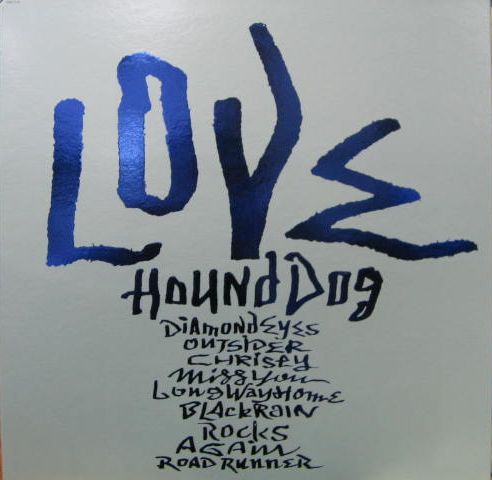 LOVE
HOUNDDOG
DIAMONDEYES
OUTSIDER
CHRISEY
Miss You
LONGWAYHOME
BLACKRAIN
ROCKS
AGAIN
ROAD RUNNER